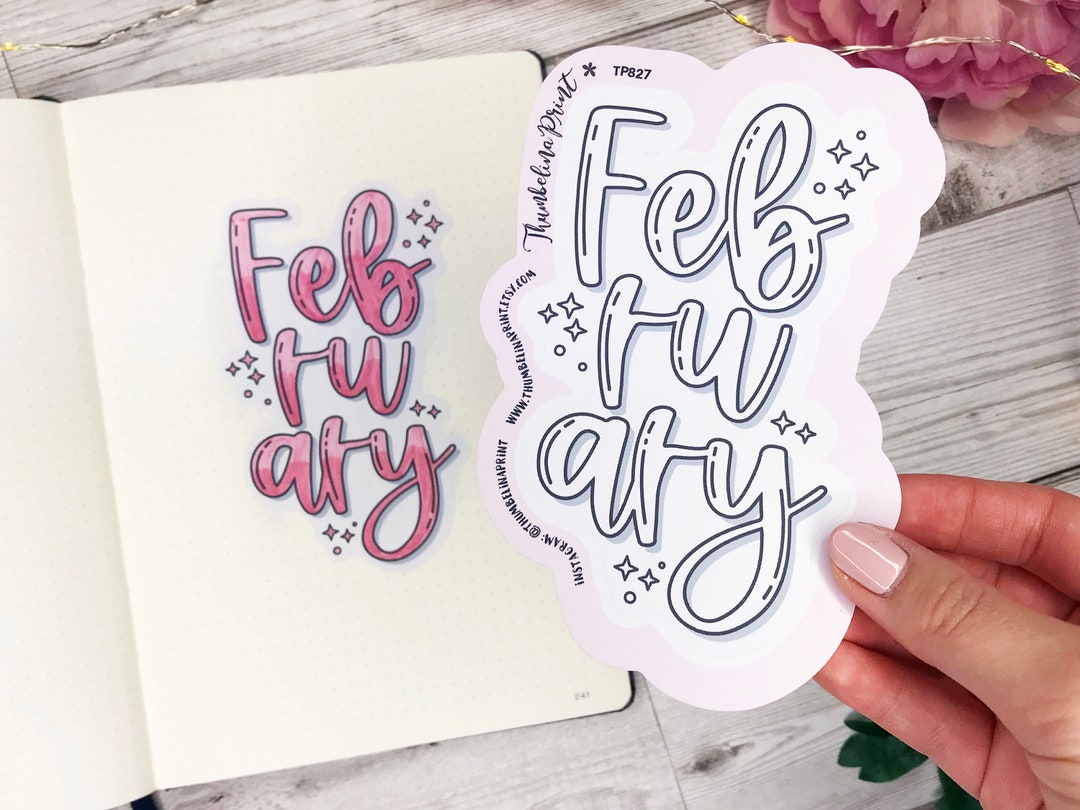 Feb
ru
ary
241
Thumbelina Print * TP827
WWW.THUMBELINAPRINT.ETSY.COM
INSTAGRAM:@THUMBELINAPRINT
Feb
ru
ary